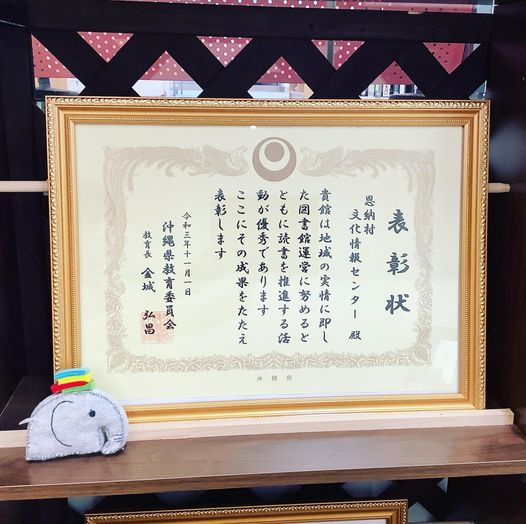 表彰状
恩納村
文化情報センター 殿
貴館は地域の実情に即し
た図書館運営に努めると
ともに読書を推進する活
動が優秀であります
ここにその成果をたたえ
表彰します
令和三年十一月一日
沖縄県教育委員会
教育長 金城 弘昌
沖縄県